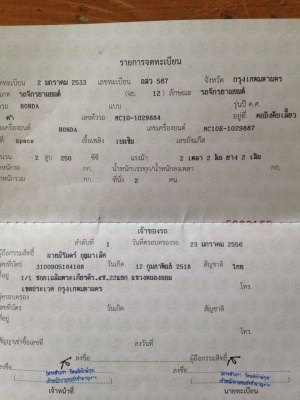 รายการจดทะเบียน
จดทะเบียน 2 มกราคม 2533 เลขทะเบียน อสว 567 จังหวัด กรุงเทพมหานคร
รถจักรยานยนต์ (รย. 12) ลักษณะ รถจักรยานยนต์
HONDA แบบ รุ่นปี ค.ศ.
ดำ เลขตัวรถ MC10-1029884 อยู่ที่
เครื่องยนต์ HONDA เลขเครื่องยนต์ MC10E-1029887
ที่ เชื้อเพลิง เบนซิน เลขถังแก๊ส
จำนวน 2 สูบ 250 ซีซี แรงม้า 2 เพลา 2 ล้อ ยาง 2 เส้น
น้ำหนักรถ กก. น้ำหนักบรรทุก/น้ำหนักลงเพลา กก.
น้ำหนักรวม กก. ที่นั่ง 2 คน
เจ้าของรถ
ลำดับที่ 1 วันที่ครอบครองรถ 23 มกราคม 2556
ผู้ถือกรรมสิทธิ์
เลขที่บัตร 3100905164168 วันเกิด 12 กุมภาพันธ์ 2518 สัญชาติ ไทย
ที่อยู่ 1/1 แขวงคลองเตย
กรุงเทพมหานคร โทร.
ผู้ครอบครอง
เลขที่บัตร วันเกิด สัญชาติ
ที่อยู่ โทร.
สัญญาเช่าซื้อเลขที่ ลงวันที่
ลงชื่อ ผู้ถือกรรมสิทธิ์
ลงชื่อ ลงชื่อ
เจ้าหน้าที่ นายทะเบียน